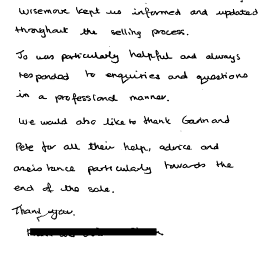 Wisemove kept us informed and updated
throughout the selling process.
Jo was particularly helpful and always
responded to enquiries and questions
in a professional manner.
We would also like to thank Gavin and
Pete for all their help, advice and
assistance particularly towards the
end of the sale.
Thank you.